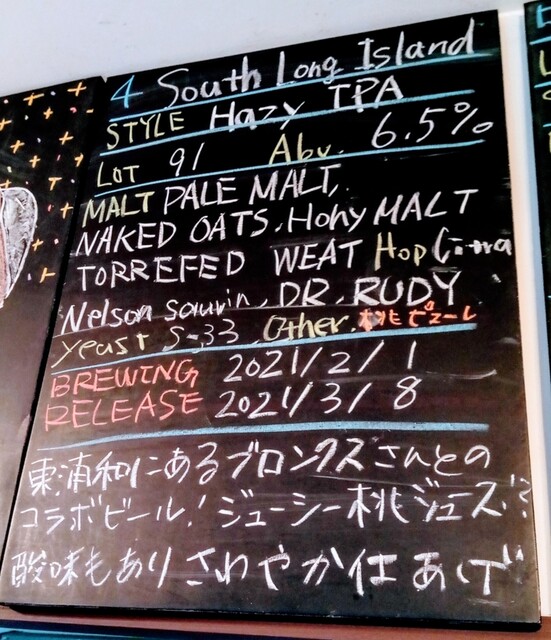 4 South Long Island
STYLE Hazy IPA
LOT 91 Abv. 6.5%
MALT PALE MALT,
NAKED OATS, Hony MALT
TORREFED WEAT Hop Citra
Nelson sauvin, DR. RUDY
Yeast S-33 Other. 桃ピューレ
BREWING 2021/2/1
RELEASE 2021/3/8
東浦和にあるブロンクスさんとの
コラボビール! ジューシー桃ジュース!?
酸味もありさわやか仕あげ